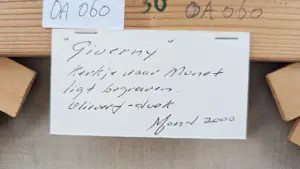 OA 060
50 OA 060
"Giverny"
Kerkje waar Monet
ligt begraven.
Olieverf-doek
2000